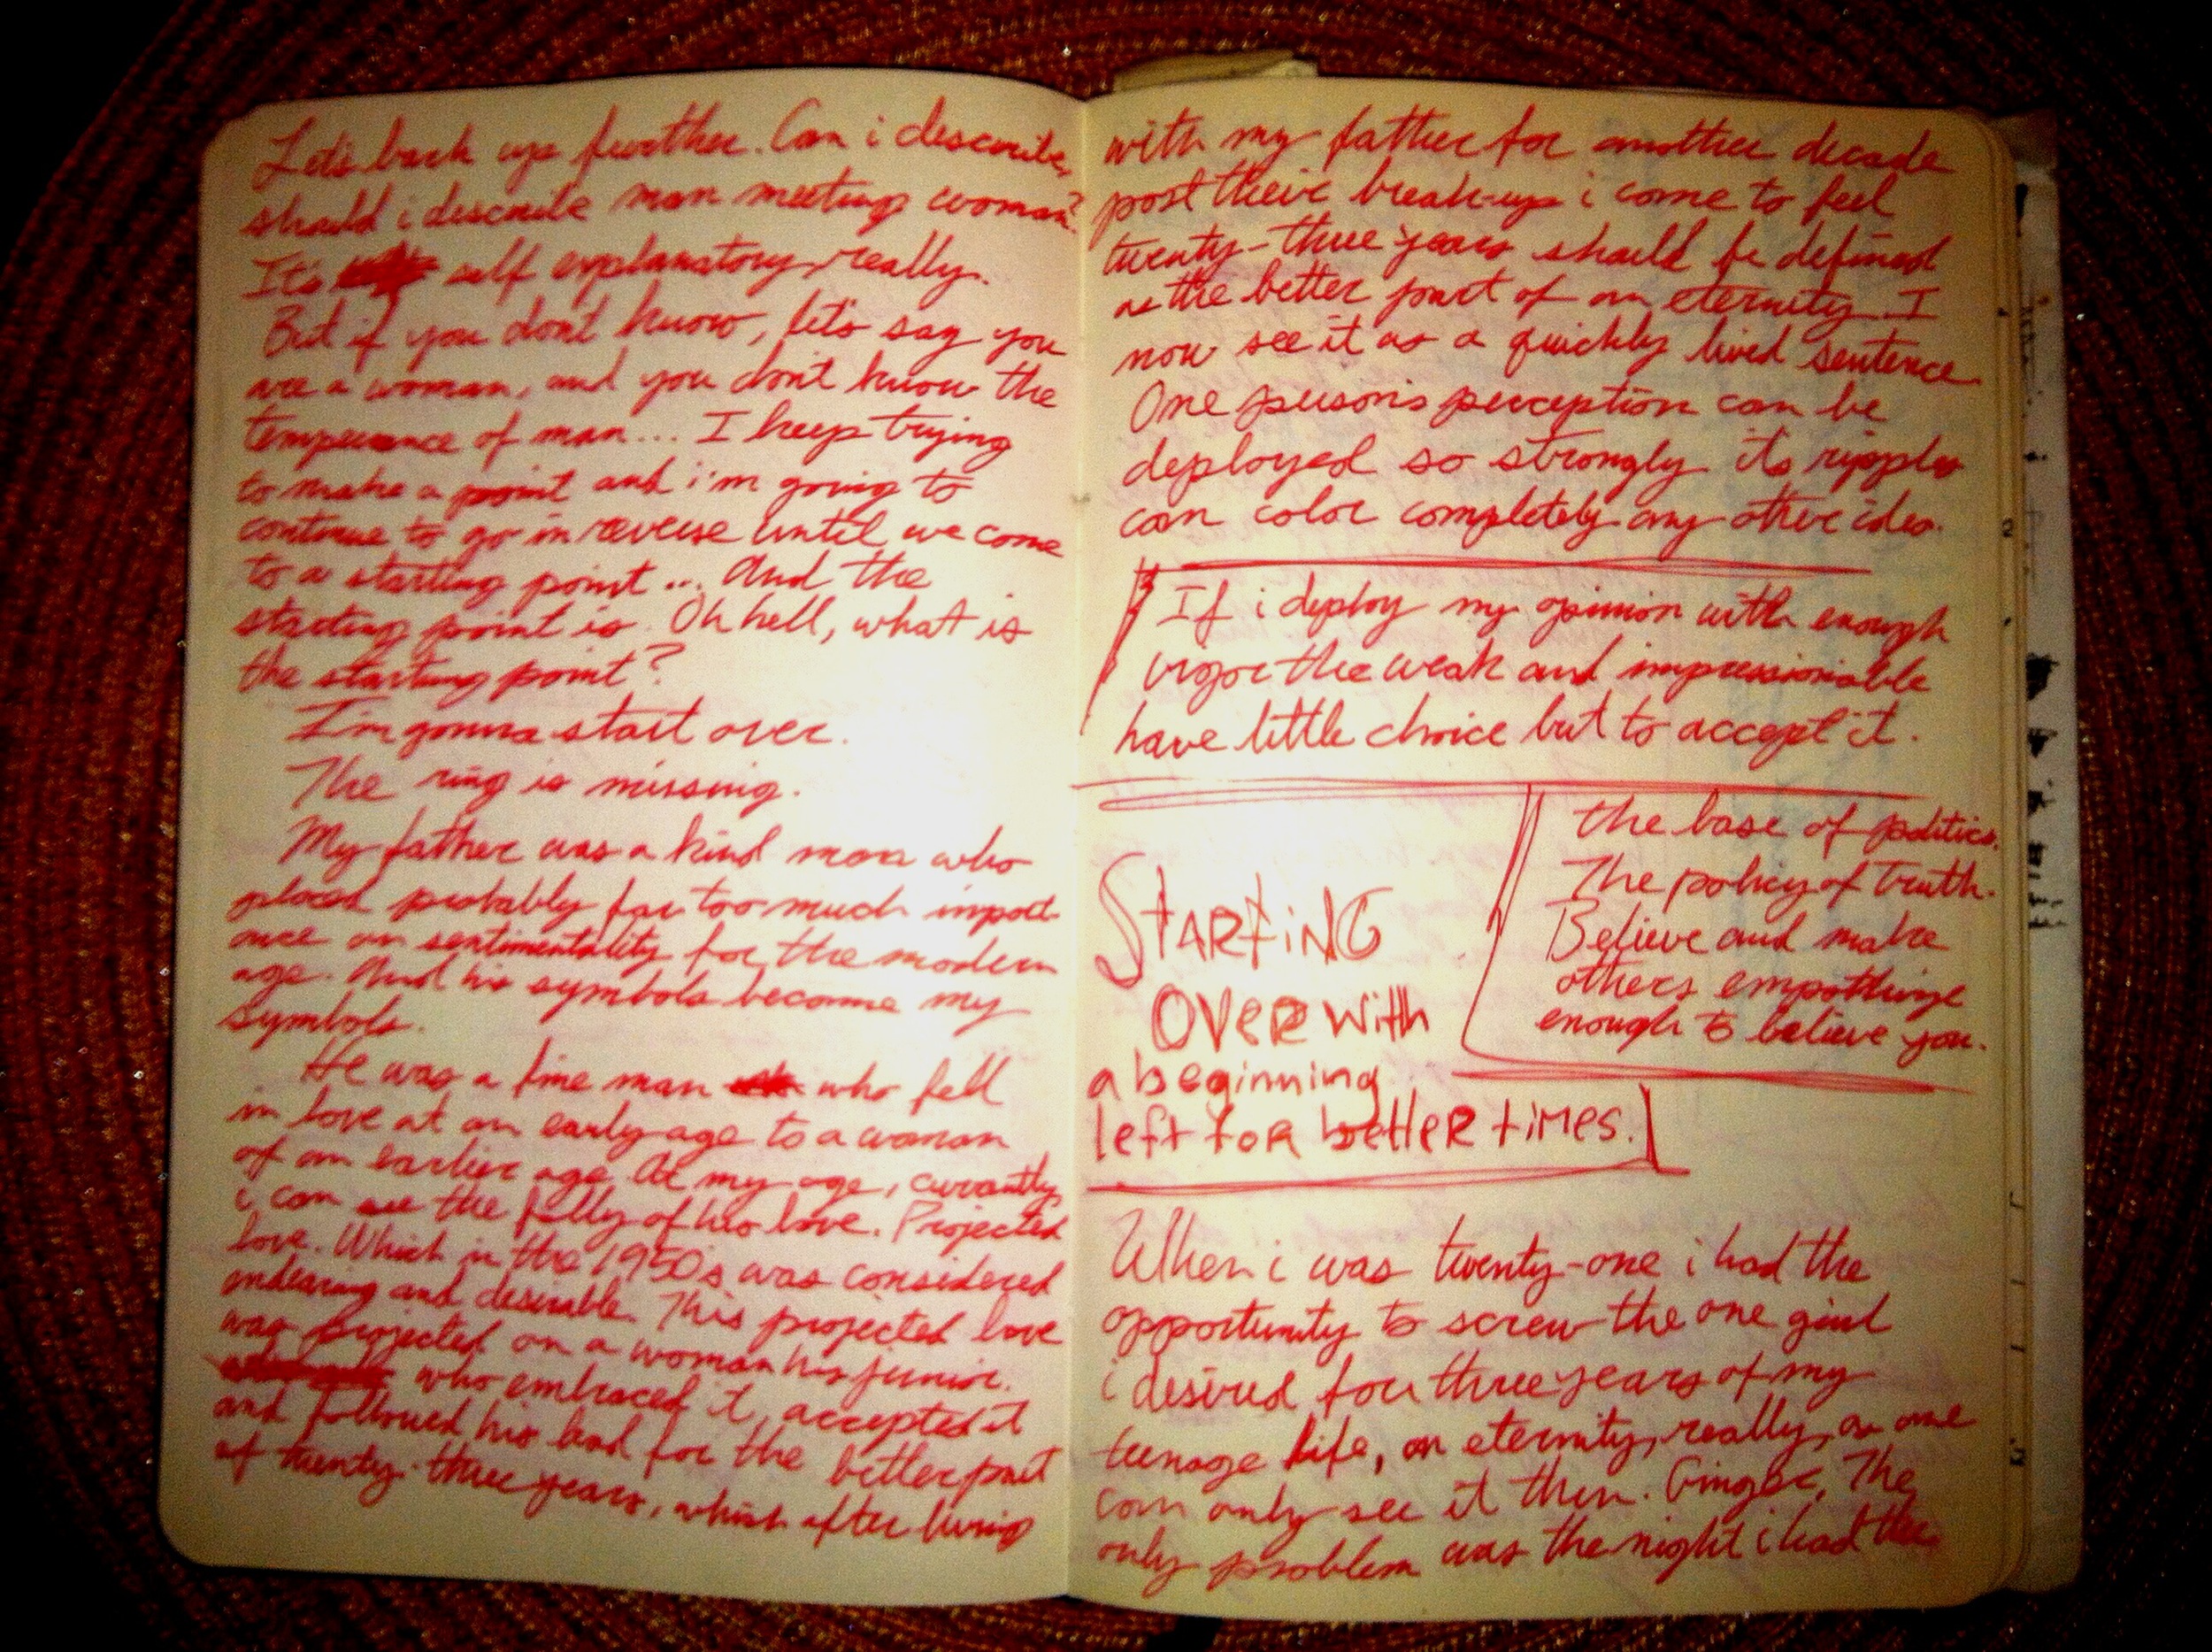 Let's back up further. Can i describe,
should i describe man meeting woman?
It's self explanatory, really.
But if you don't know, let's say you
are a woman, and you don't know the
temperance of man... I keep trying
to make a point and i'm going to
continue to go in reverse until we come
to a starting point... And the
starting point is. Oh hell, what is
the starting point?
I'm gonna start over.
The ring is missing.
My father was a kind man who
placed probably far too much import-
ance on sentimentality for the modern
age. And his symbols become my
symbols.
He was a fine man who fell
in love at an early age to a woman
of an earlier age. At my age, currently
i can see the folly of his love. Projected
love. Which in the 1950's was considered
endearing and desirable. This projected love
was projected on a woman his junior.
who embraced it, accepted it
and followed his lead for the better part
of twenty-three years, which after living
with my father for another decade
post their break-up i come to feel
twenty-three years should be defined
as the better part of an eternity. I
now see it as a quickly lived sentence
One person's perception can be
deployed so strongly its ripples
can color completely any other idea.
If i deploy my opinion with enough
vigor the weak and impressionable
have little choice but to accept it.
the base of politics.
The policy of truth.
Believe and make
others empathize
enough to believe you.
STARTING
OVER with
a beginning
left for better times.
When i was twenty-one i had the
opportunity to screw the one girl
i desired for three years of my
teenage life, an eternity, really, as one
can only see it then. Ginger, The
only problem was the night i had the